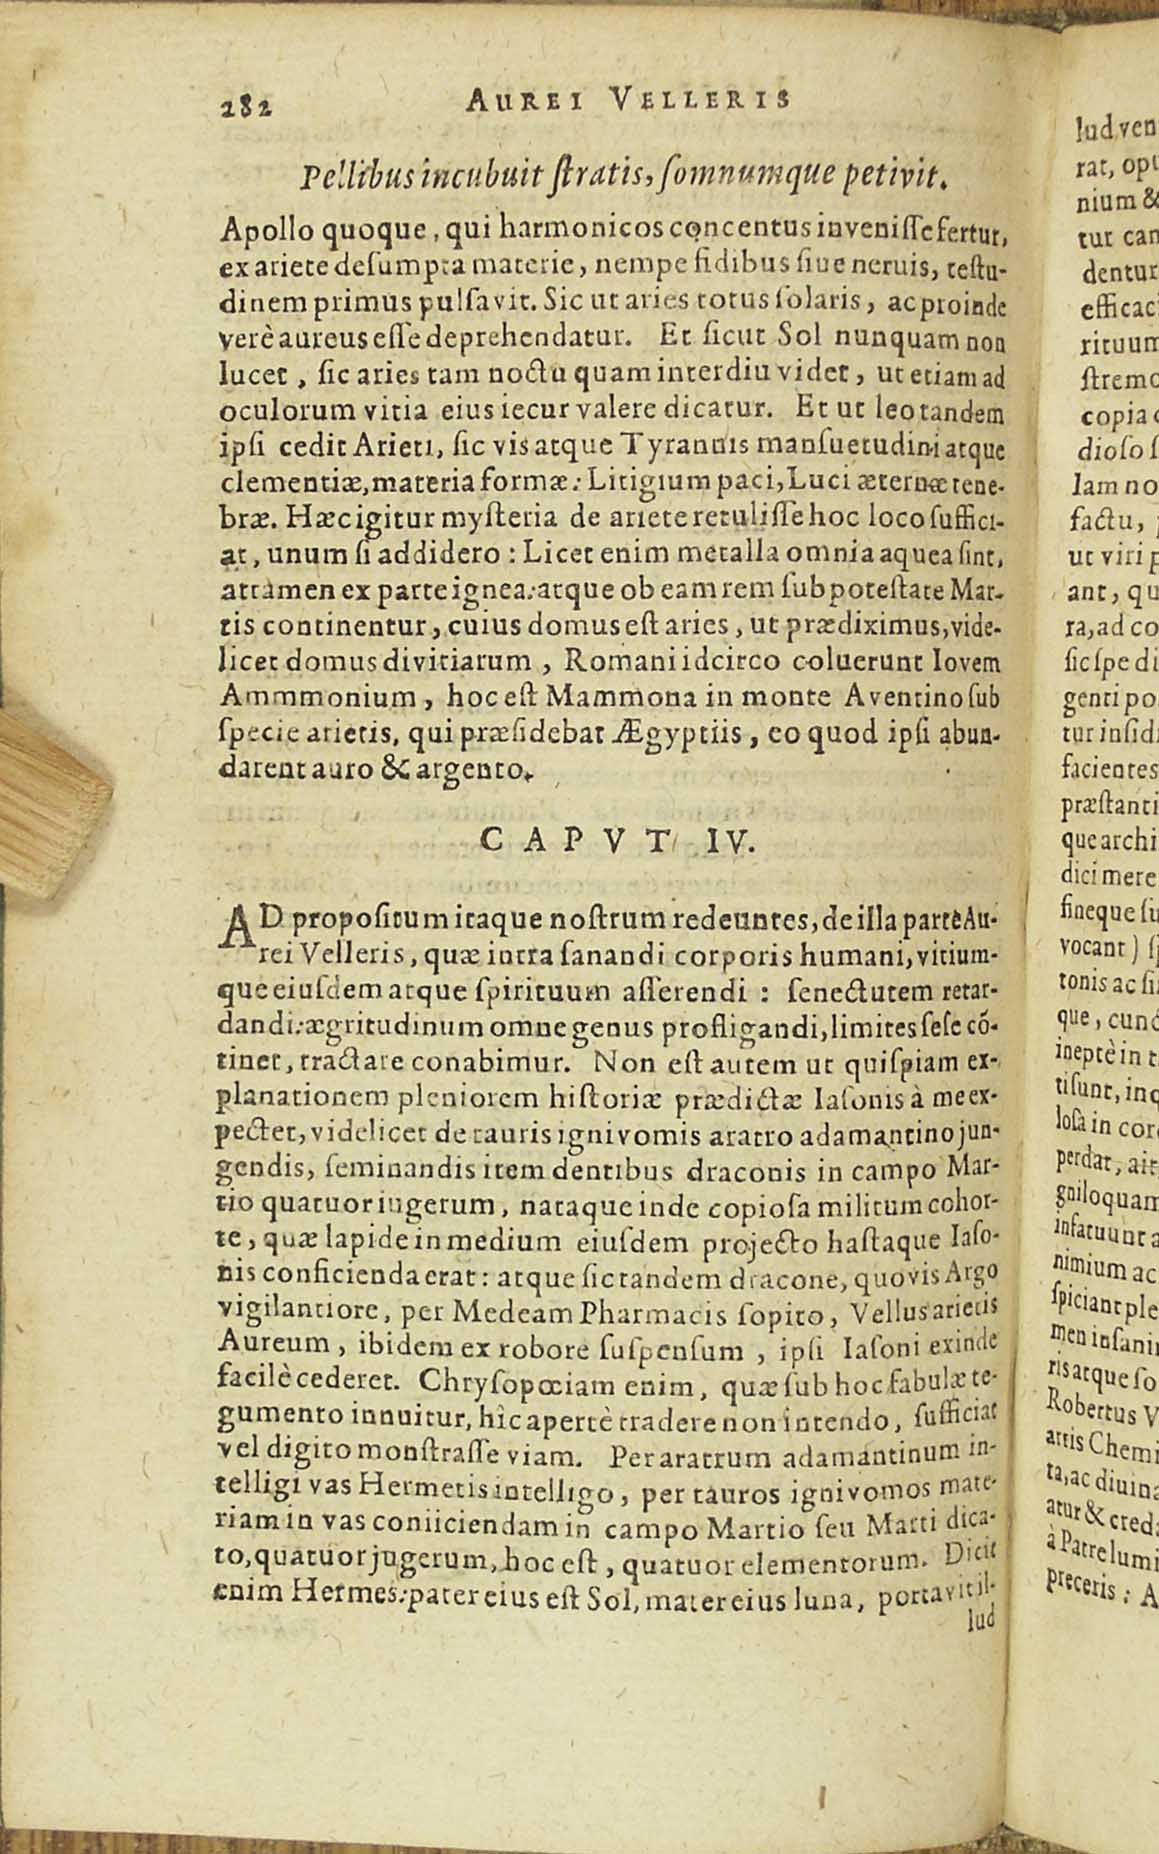 282 AUREI VELLERIS
Pellibus incubuit ſtratis, ſomnumque petivit.
Apollo quoque, qui harmonicos concentus inveniſſe fertur,
ex ariete deſumpta materie, nempe fidibus ſiue neruis, teſtu-
dinem primus pulſavit. Sic ut aries totus ſolaris, ac proinde
verè aureus eſſe deprehendatur. Et ſicut Sol nunquam non
lucet, ſic aries tam noctu quam interdiu videt, ut etiam ad
oculorum vitia eius iecur valere dicatur. Et ut leo tandem
ipſi cedit Arieti, ſic vis atque Tyrannis manſuetudini atque
clementiæ, materia formæ: Litigium paci, Luci æternæ tene-
bræ. Hæc igitur myſteria de ariete retuliſſe hoc loco ſuffici-
at, unum ſi addidero: Licet enim metalla omnia aquea ſint,
attamen ex parte ignea: atque ob eam rem ſub poteſtate Mar-
tis continentur, cuius domus eſt aries, ut prædiximus, vide-
licet domus divitiarum, Romani idcirco coluerunt Iovem
Ammmonium, hoc eſt Mammona in monte Aventino ſub
ſpecie arietis, qui præſidebat Ægyptiis, eo quod ipſi abun-
darent auro & argento.
CAPVT IV.
AD propoſitum itaque noſtrum redeuntes, de illa parte Au-
rei Velleris, quæ intra ſanandi corporis humani, vitium-
que eiuſdem atque ſpirituum aſſerendi: ſenectutem retar-
dandi: ægritudinum omne genus profligandi, limites ſeſe cō-
tinet, tractare conabimur. Non eſt autem ut quiſpiam ex-
planationem pleniorem hiſtoriæ prædictæ Iaſonis à me ex-
pectet, videlicet de tauris ignivomis aratro adamantino jun-
gendis, ſeminandis item dentibus draconis in campo Mar-
tio quatuor iugerum, nataque inde copioſa militum cohor-
te, quæ lapide in medium eiuſdem projecto haſtaque Iaſo-
nis conficienda erat: atque ſic tandem dracone, quovis Argo
vigilantiore, per Medeam Pharmacis ſopito, Vellus arietis
Aureum, ibidem ex robore ſuſpenſum, ipſi Iaſoni exinde
facilè cederet. Chryſopœiam enim, quæ ſub hoc fabulæ te-
gumento innuitur, hìc apertè tradere non intendo, ſufficiat
vel digito monſtraſſe viam. Per aratrum adamantinum in-
telligi vas Hermetis intelligo, per tauros ignivomos mate-
riam in vas coniiciendam in campo Martio ſeu Marti dica-
to, quatuor jugerum, hoc eſt, quatuor elementorum. Dicit
enim Hermes: pater eius eſt Sol, mater eius luna, portavit il-
lud
lud ven
rat, opt
nium &
tur can
dentur
efficac
rituum
ſtremo
copia
dioſo ſ
lam no
factu,
ut viri p
ant, qu
ra, ad co
ſic ſpe di
genti po
tur inſid
facientes
præſtanti
que archi
dici mere
ſineque ſu
vocant) ſ
tonis ac ſi
que, cunc
ineptè in t
ti ſunt, inq
loſa in cor
perdat, ait
gniloquam
infatuunt a
nimium ac
ſpiciant ple
men inſani
ris atque ſo
Robertus V
artis Chemi
ta, ac diuina
atur & cred
à Patre lumi
preceris: A